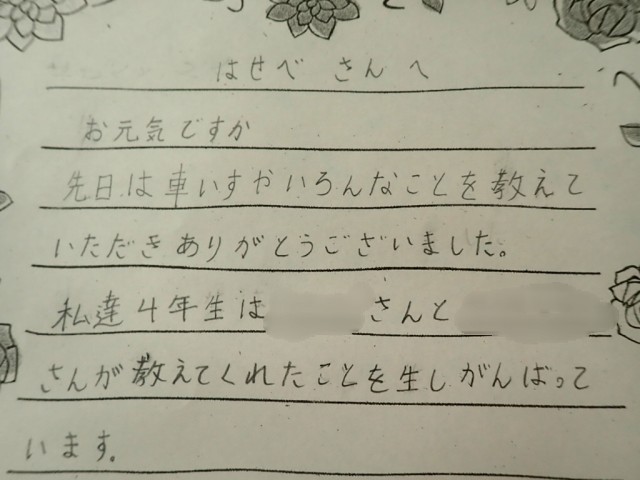 はせべ さんへ
お元気ですか
先日は車いすやいろんなことを教えて
いただきありがとうございました。
私達4年生は さんと
さんが教えてくれたことを生しがんばって
います。